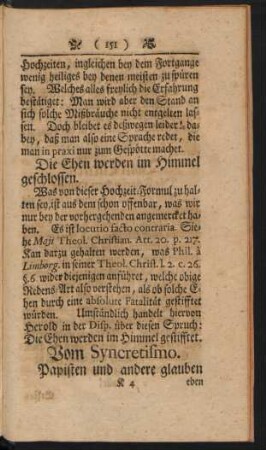 ( 151 )
Hochzeiten, ingleichen bey dem Fortgange
wenig heiliges bey denen meisten zu spüren
sey. Welches alles freylich die Erfahrung
bestätiget: Man wird aber den Stand an
sich solche Mißbräuche nicht entgelten las-
sen. Doch bleibet es deßwegen leider! da-
bey, daß man also eine Sprache redet, die
man in praxi nur zum Gespötte machet.
Die Ehen werden im Himmel
geschlossen.
Was von dieser Hochzeit-Formul zu hal-
ten sey, ist aus dem schon offenbar, was wir
nur bey der vorhergehenden angemercket ha-
ben. Es ist locutio facto contraria. Sie-
he Maji Theol. Christian. Art. 20. p. 217.
Kan darzu gehalten werden, was Phil. à
Limborg. in seiner Theol. Christ. l. 2. c. 26.
§. 6. wider diejenigen anführet, welche obige
Redens-Art also verstehen, als ob solche E-
hen durch eine absolute Fatalität gestifftet
würden. Umständlich handelt hiervon
Herold in der Disp. über diesen Spruch:
Die Ehen werden im Himmel gestifftet.
Vom Syncretismo.
Papisten und andere glauben
K 4 eben